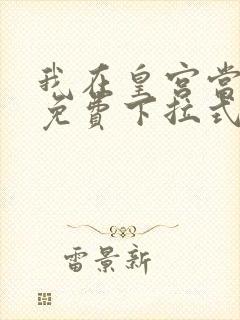 我在皇宫当
免費下拉式
雷景新